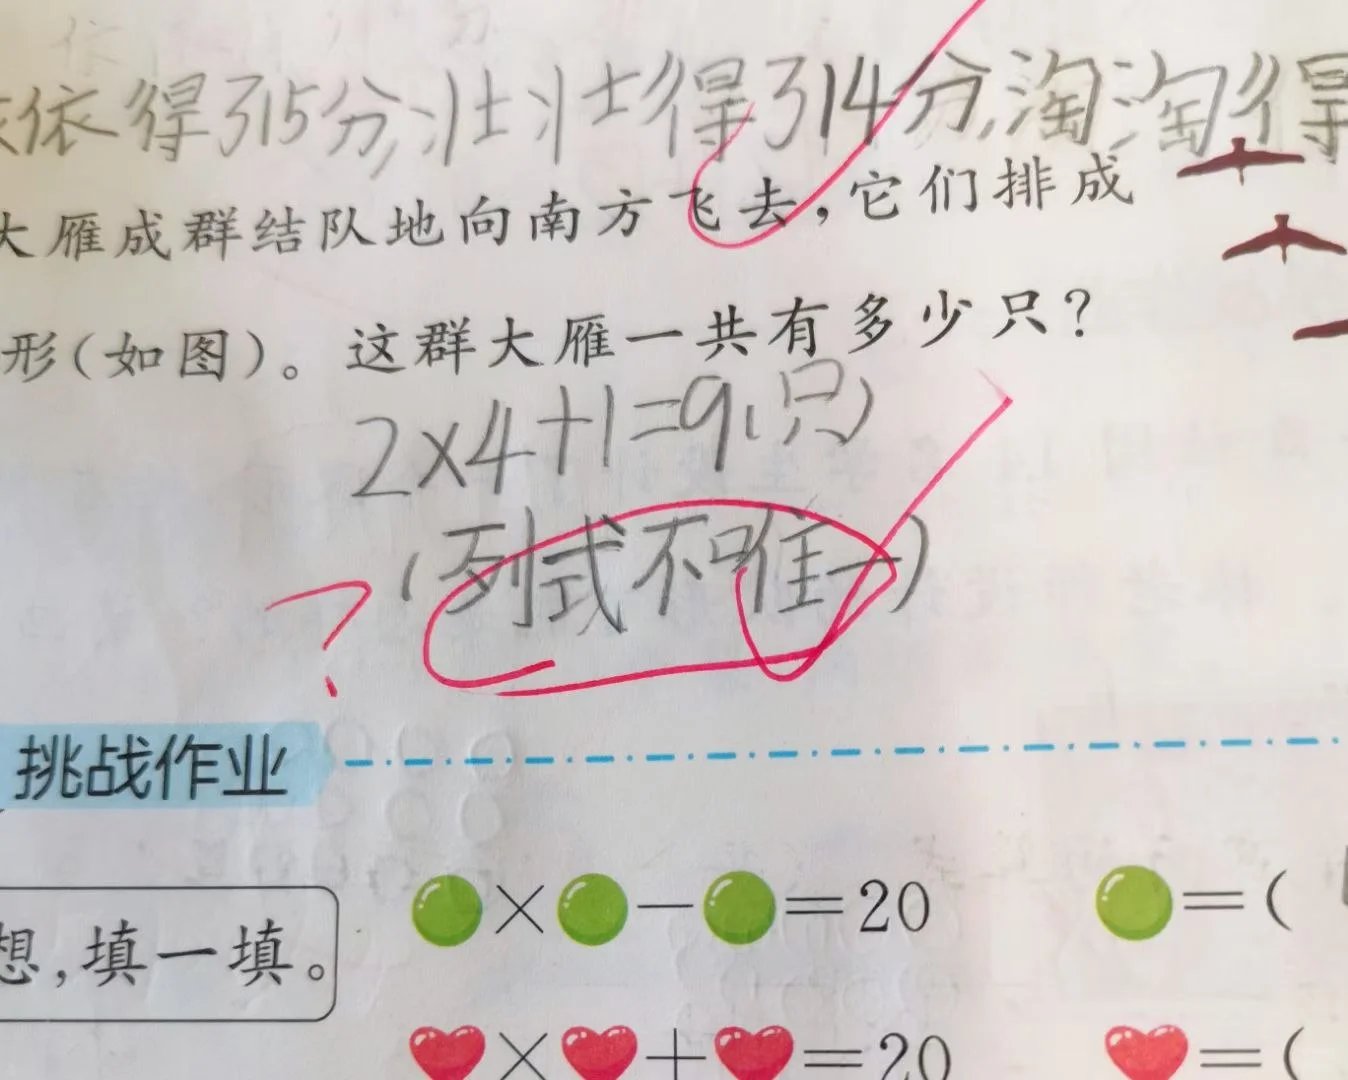 依依得315分,壮壮得314分,淘淘得
大雁成群结队地向南方飞去,它们排成
形(如图)。这群大雁一共有多少只?
2×4+1=9(只)
(列式不唯一)
?
挑战作业
想,填一填。
×-=20 =(
×+=20 =(